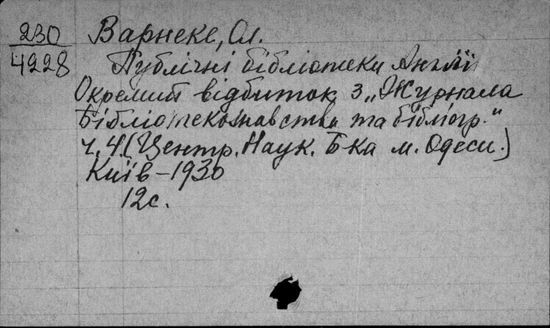 230
4228
Варнеке, Ол.
Публічні бібліотеки Англії
Окремий відбиток з „Журнала
Бібліотекознавства та бібліогр."
ч. 4. (Центр. Наук. Б-ка м. Одеси.)
Київ – 1930
12 с.